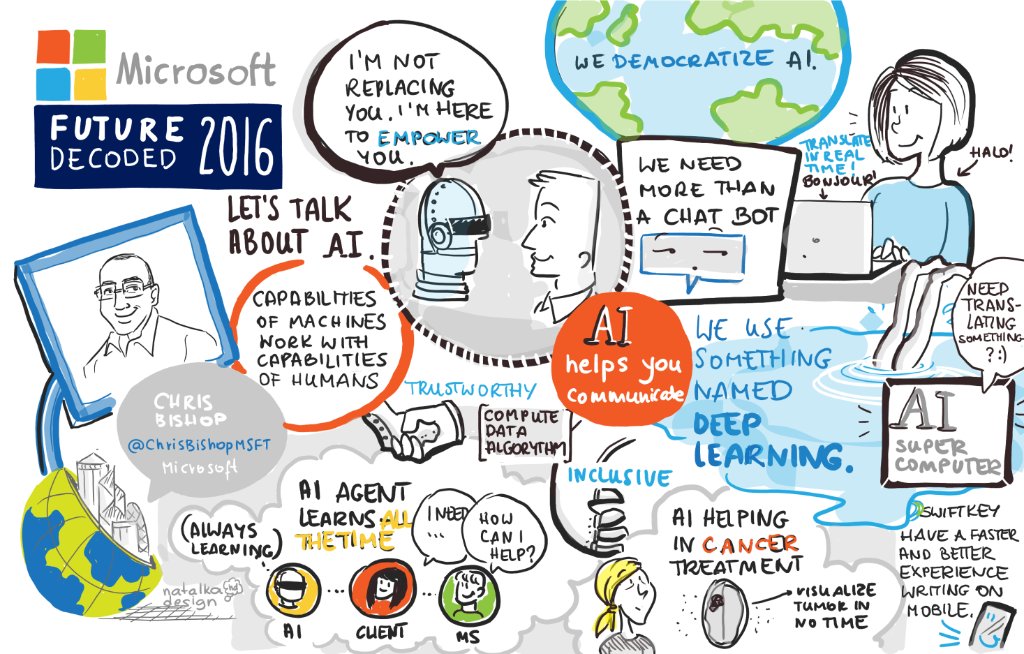 Microsoft
FUTURE
DECODED
2016
LET'S TALK
ABOUT AI.
I'M NOT
REPLACING
YOU. I'M HERE
TO EMPOWER
YOU.
WE DEMOCRATIZE AI.
WE NEED
MORE THAN
A CHAT BOT
TRANSLATE
IN REAL
TIME!
BONJOUR!
HALO!
CAPABILITIES
OF MACHINES
WORK WITH
CAPABILITIES
OF HUMANS
CHRIS
BISHOP
@CHRISBISHOPMSFT
Microsoft
AI
helps you
communicate
TRUSTWORTHY
COMPUTE
DATA
ALGORYTHM
INCLUSIVE
WE USE
SOMETHING
NAMED
DEEP
LEARNING.
NEED
TRANS-
LATING
SOMETHING
?:)
AI
SUPER
COMPUTER
(ALWAYS
LEARNING)
AI AGENT
LEARNS ALL
THE TIME
I NEED
...
HOW
CAN I
HELP?
AI
CLIENT
MS
natalka
design
nd
AI HELPING
IN CANCER
TREATMENT
VISUALIZE
TUMOR IN
NO TIME
SWIFTKEY
HAVE A FASTER
AND BETTER
EXPERIENCE
WRITING ON
MOBILE.